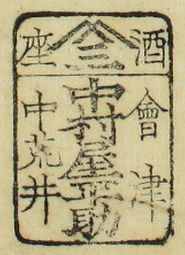 酒座
會津
中村屋平助
中荒井